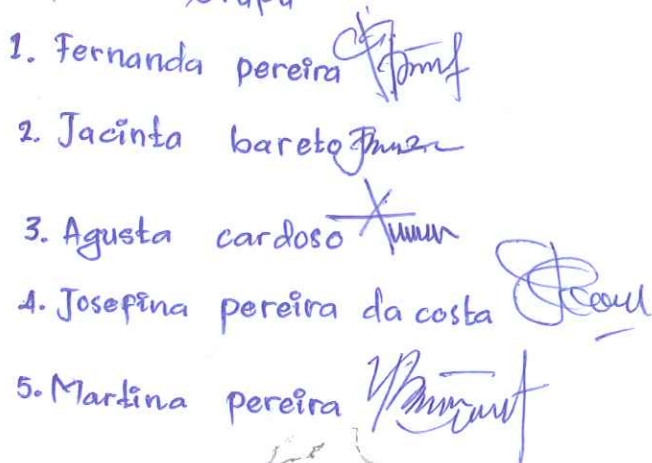 1. Fernanda pereira
2. Jacinta bareto
3. Agusta cardoso
4. Josefina pereira da costa
5. Martina pereira